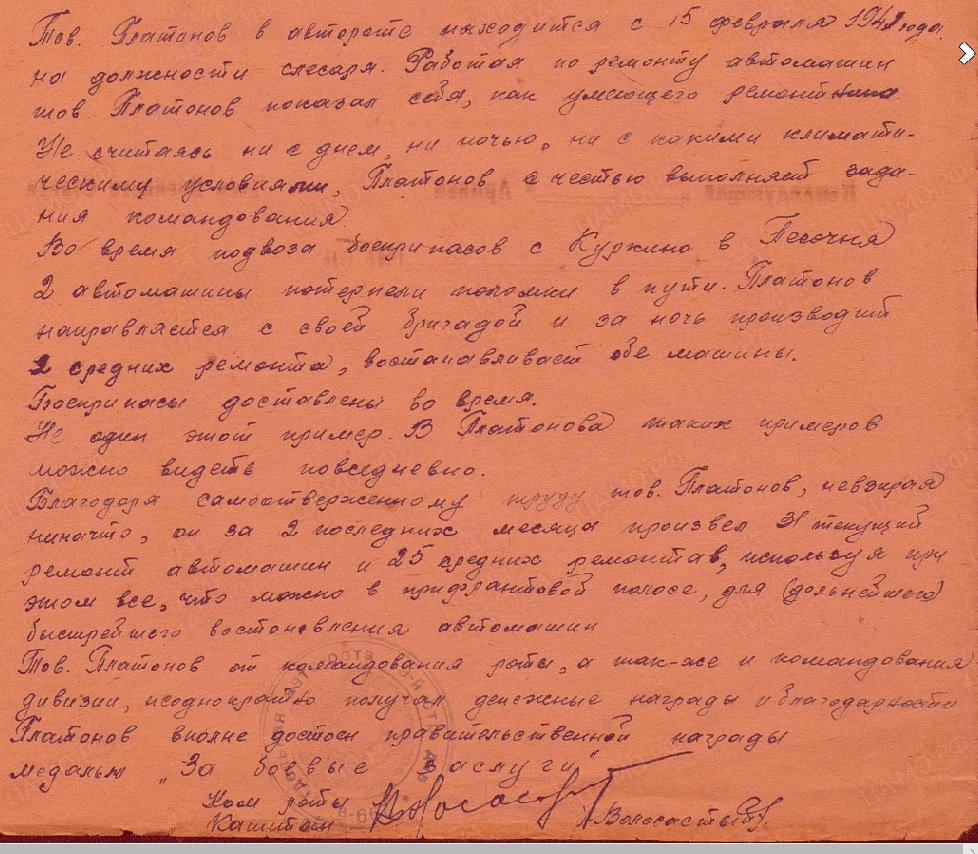 Тов. Платонов в автороте находится с 15 февраля 1942 года
на должности слесаря. Работая по ремонту автомашин
тов. Платонов показал себя, как умеющего
Не считаясь ни с днем, ни ночью, ни с какими климати-
ческими условиями, Платонов с честью выполняет зада-
ния командования.
Во время подвоза боеприпасов с Куркино в Песочня
2 автомашины потерпели поломки в пути. Платонов
направляется с своей бригадой и за ночь производит
2 средних ремонта, востанавливает обе машины.
Боеприпасы доставлены во время.
Не один этот пример. В Платонова таких примеров
можно видеть повседневно.
Благодоря самоотверженному труду тов. Платонов, невзирая
ниначто, он за 2 последних месяца произвел 31 текущий
ремонт автомашин и 25 средних ремонтав, используя при
этом все, что можно в прифрантовой полосе, для (дольнейшего)
быстрейшего востоновления автомашин
Тов. Платонов от командования роты, а так-же и командования
дивизии, неоднократно получал денежные награды и благодарности
Платонов вполне достоен правительственной награды
медалью „За боевые заслуги"
Ком роты
Капитан